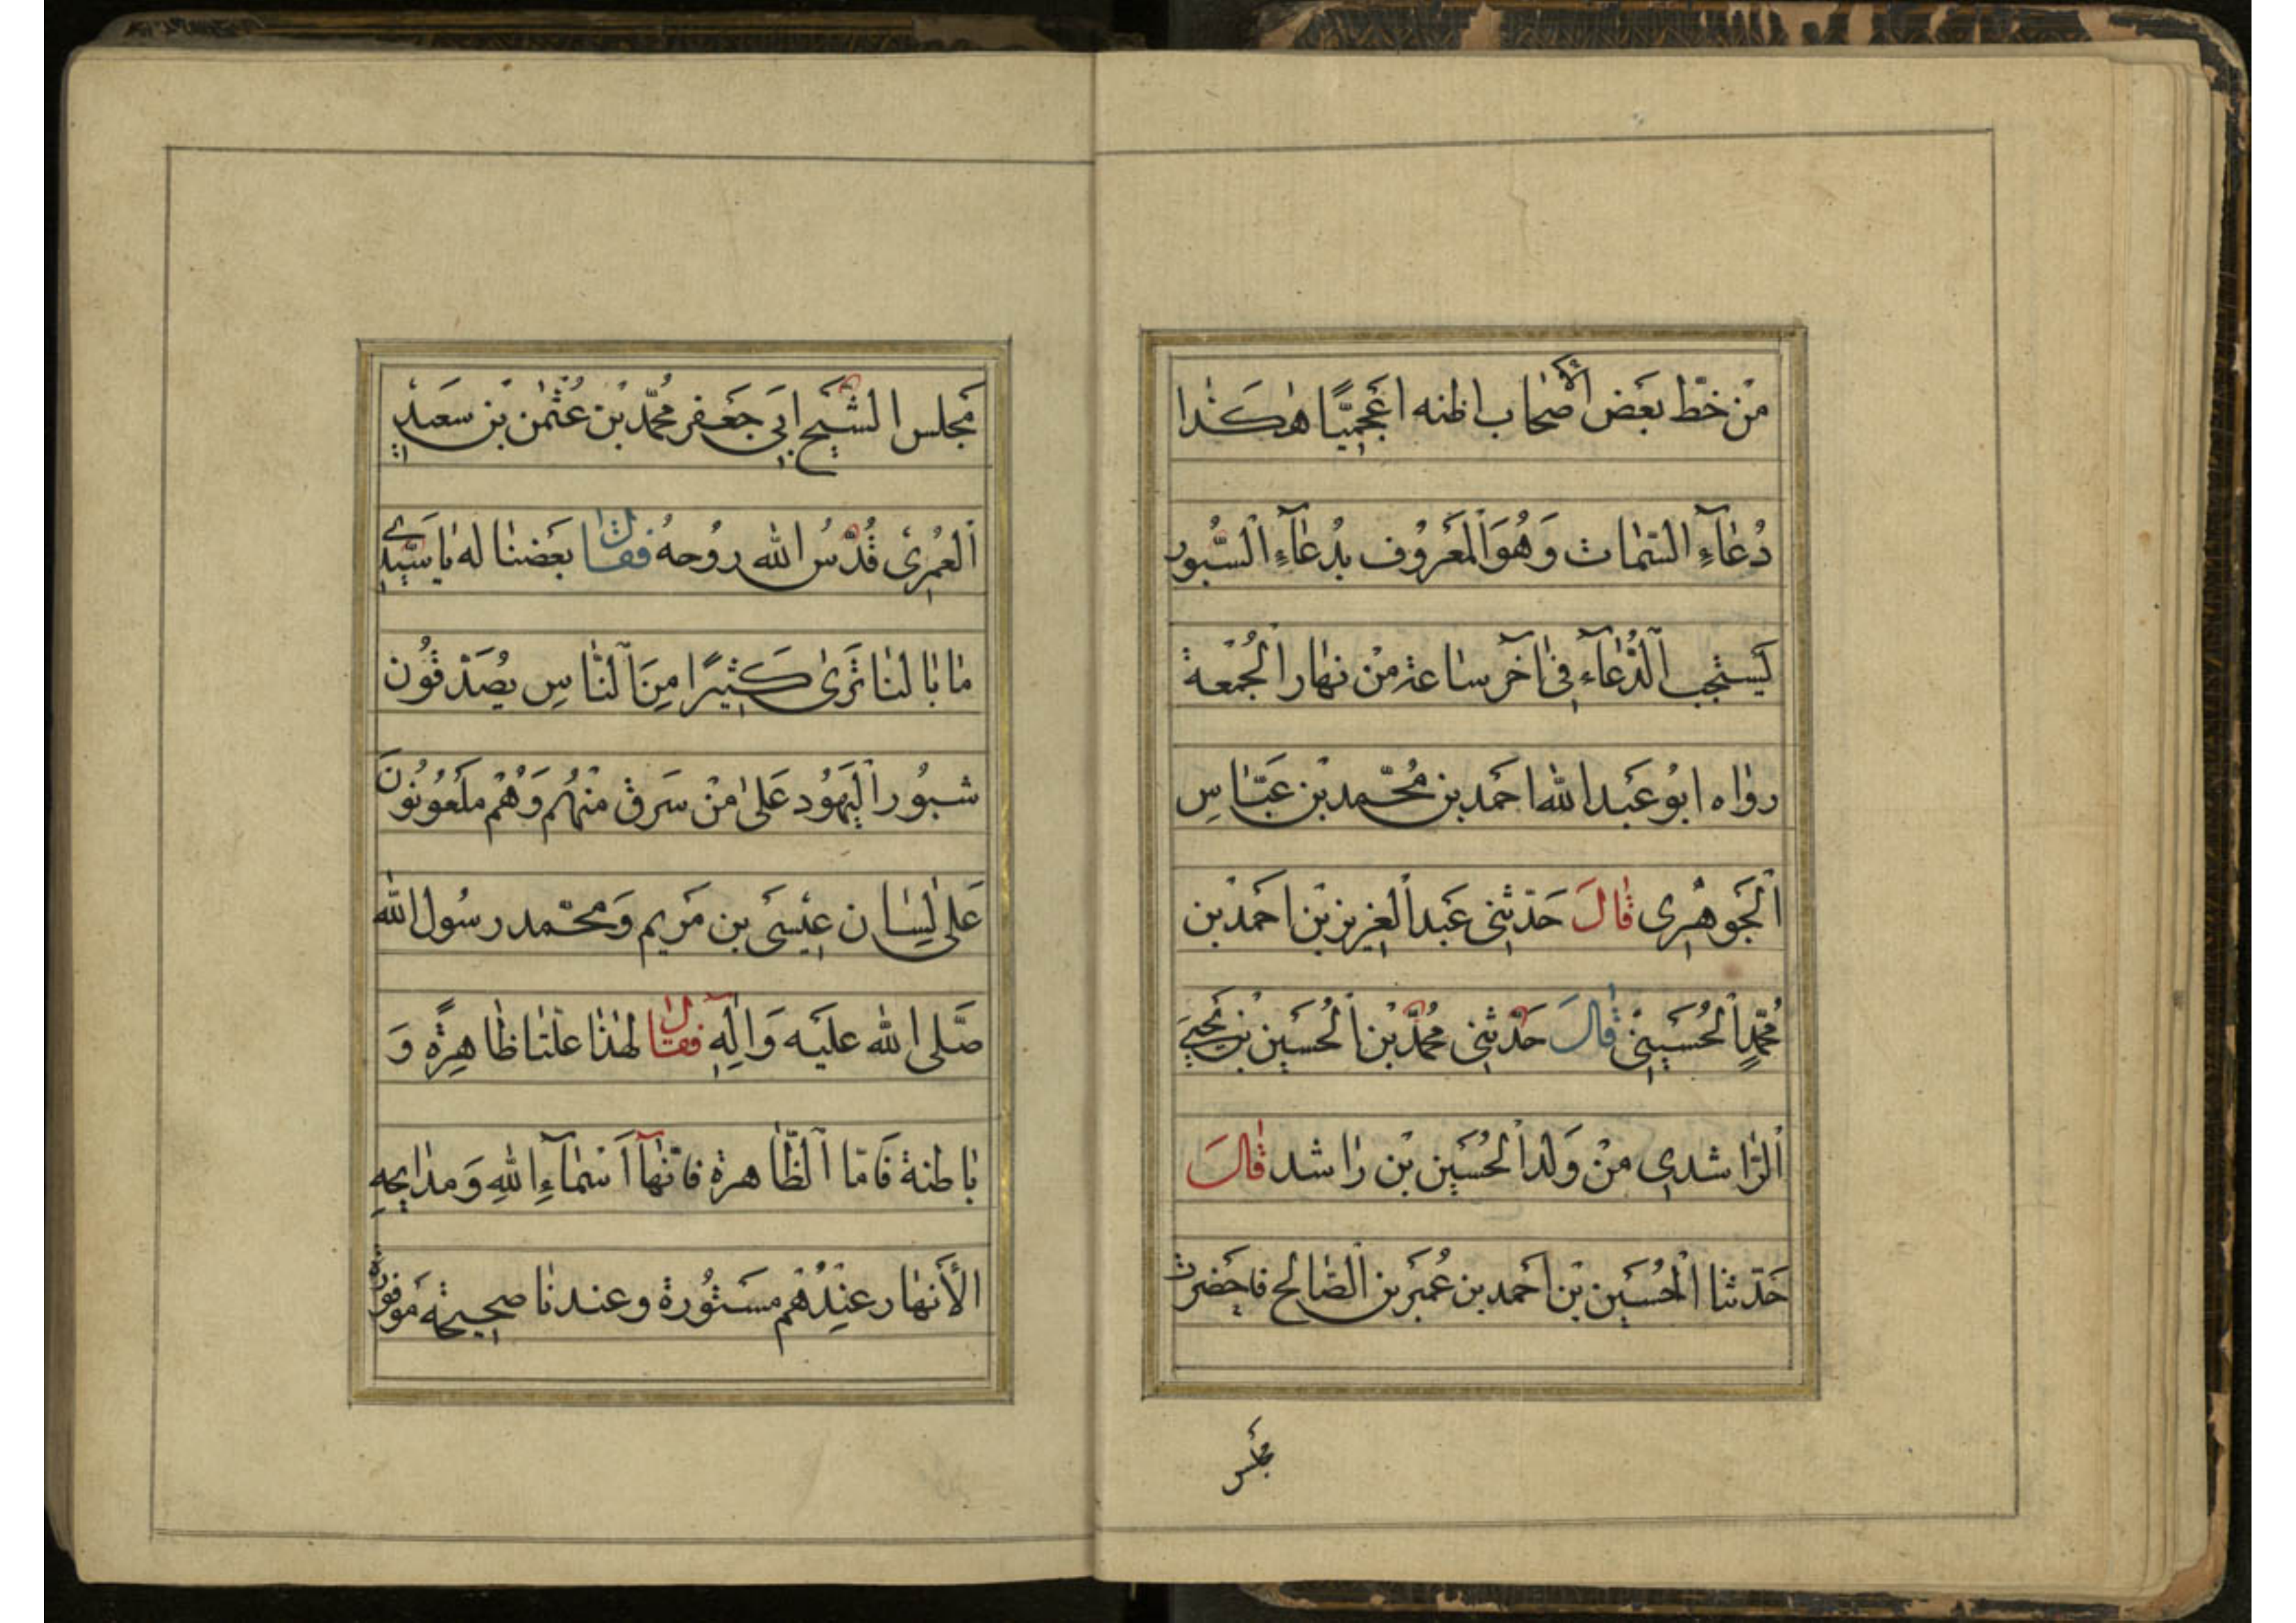 مِنْ خَطّ بَعَض الأصْحَاب اظنه اعَجَمِيًّا هٰكَذا
دُعٰآءِ السّمٰات وَهُوَ الْمَعَرُوف بِدُعٰآءِ السُّبُور
يَستجب الدُّعٰآءِ فِى آخَر سٰاعة مِنْ نهٰار الْجُمْعة
روٰاه ابُو عَبد الله احَمَد بن مُحَّمد بْن عَبّٰاسِ
الْجَوهَرِى قٰالَ حَدّثِنى عَبد الْعِزيز بْن احَمَد بْن
مُحَّمدٍ الْحُسَيِنىّ قٰالَ حَدّثِنى مُحمَّد بْن الْحُسَيِن بْن يَحيَى
الرّٰاشدِى مِنْ وَلَد الْحُسَيِن بْن رٰاشد قٰالَ
حَدّثنا الْحُسَيِن بْن احَمَد بن عُمَر بن الصّٰالح فاحِضَرت
مَجلس
مَجلس الشّيَخ ابَىِ جَعَفر مُحمَّد بْن عُثْمٰن بْن سَعَيدٍ
الْعُمِرىٰ قُدّسُ الله رُوحهُ فقٰال بعَضنٰا له يٰا سَيّدِى
مٰا بٰا لنٰا نَرىٰ كَثِيرًا مِنَ النّٰاسِ يُصَدْقُون
شبُور الْيَهُود عَلىٰ مَنْ سَرق مِنْهُم وَهُمْ مَلَعُونُونَ
عَلى لِسٰان عِيسَى بن مَريم وَمحَّمد رسُول الله
صَّلى الله علَيه وَآلِهِ فقٰال لهٰذا علّتٰا ظٰاهِرةً وَ
بٰاطنة فَامّا الظّٰاهرة فانّهٰآ اَسْمٰآءِ اللهِ وَمدٰايحِهِ
الأَنهٰار عِنْدُهْم مسَتُورة وعندنٰا صحِيحَة مَوفورة